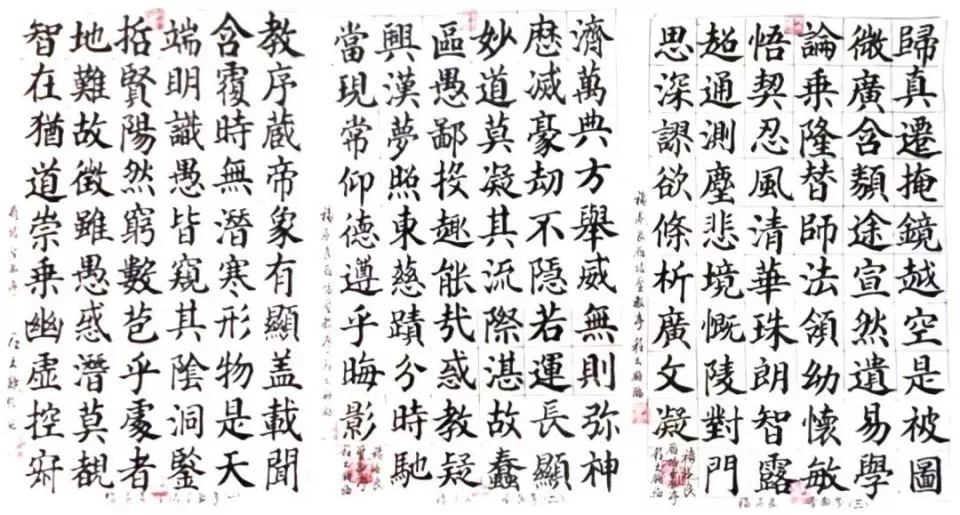 教序蔵帝象有顯盖載聞
含覆時無潛寒形物是天
端明識愚皆窺其陰洞鑒
哲賢陽然窮數苞乎處者
地難故徵雖愚惑潛莫覩
智在猶道崇乗幽虛控寂
濟萬典方舉威無則弥神
歷滅豪劫不隱若運長顯
妙道莫凝其流際湛故蠢
區愚鄙投趣能哉惑教疑
興漢夢照東慈蹟分時馳
當現常仰德遵乎晦影
歸真遷掩鏡越空是被圖
微廣含類途宣然遺易學
論乗隆替師法領幼懷敏
悟契忍風清華珠朗智露
超通測塵悲境慨陵對門
思深謬欲條析廣文凝